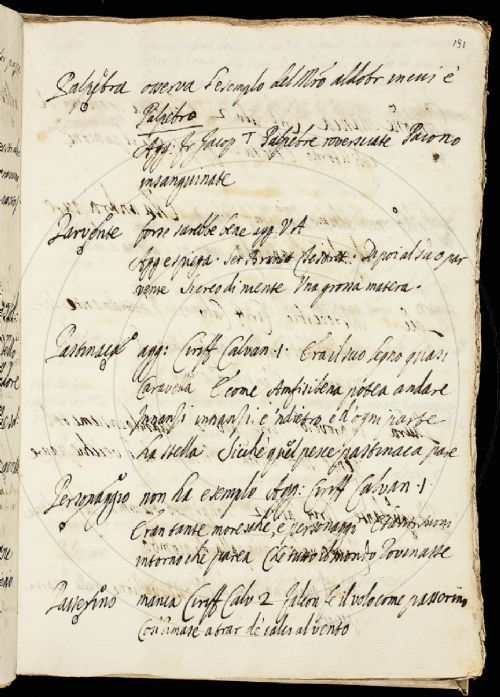 191
Palpebra osserva l'esemplo del Mro aldobr in cui è
Palpebro
Agg: fr Jacop T Palpebre roversciate Paiono
insanguinate
Parvente forse sarebbe bene agg V A
Agg e spiega. Ser Brunet Tesoret. Da poi al suo par
vente Si creò di niente Una grossa matera.
Pastinaca agg: Ciriff Calvan. 1. Era il suo legno quasi
Caravella E come Anfisibena potea andare
Innansi innansi, e 'ndietro, e d'ogni parte
ha stella Sicchè quel pesce pastinaca pare
Personaggio non ha exemplo Agg: Ciriff Calvan. 1
Eran tante moresche, e personaggi suoni
intorno che parea Che tutto il mondo rovinasse
Passerino manca Ciriff Calv 2 Falcon è il volo come passerino
Così rimase a trar de calci al vento